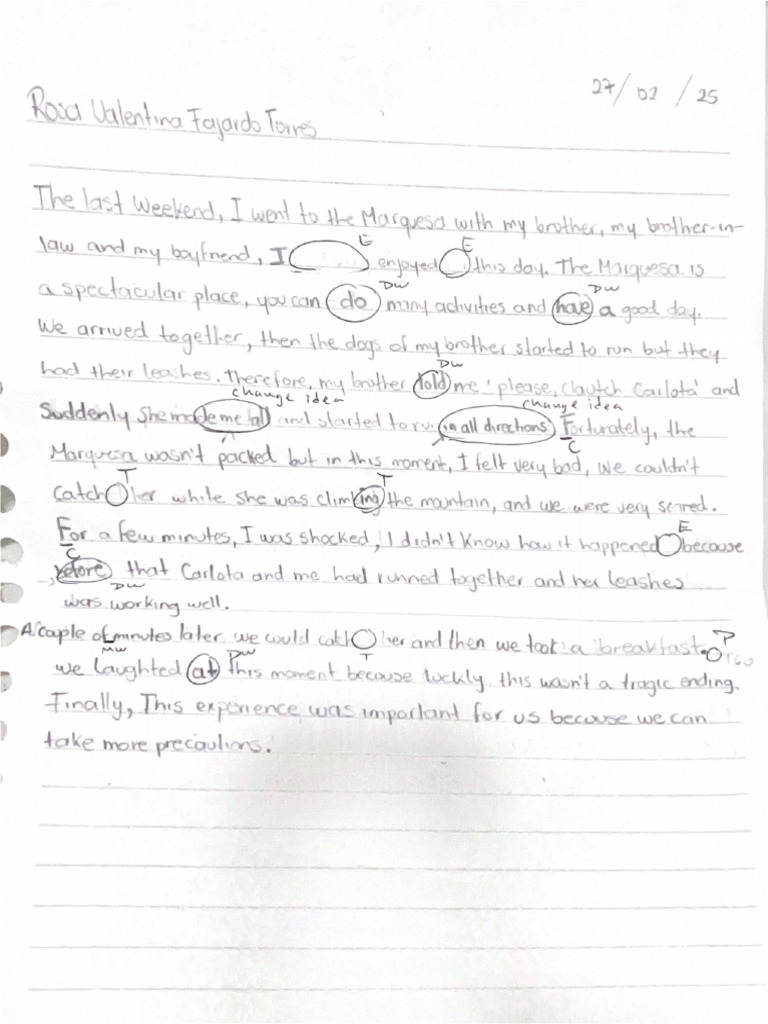 27/02/25
Rosa Valentina Fajardo Torres
The last weekend, I went to the Marquesa with my brother, my brother-in-
law and my boyfriend, I enjoyed this day. The Marquesa is
E E
a spectacular place, you can do many activities and have a good day.
DW DW
We arrived together, then the dogs of my brother started to run but they
had their leashes. Therefore, my brother told me 'please, clautch Carlota' and
DW
change idea change idea
Suddenly she made me fall and started to run in all directions. Fortunately, the
C
Marquesa wasn't packed but in this moment, I felt very bad, we couldn't
T T
catch her while she was climking the mountain, and we were very scared.
For a few minutes, I was shocked, I didn't know how it happened because
C E
before that Carlota and me had runned together and her leashes
DW
was working well.
A couple of minutes later we could catch her and then we took a breakfast.
MW DW T P
we laughted at this moment because luckly, this wasn't a tragic ending.
Finally, This experience was important for us because we can
take more precautions.